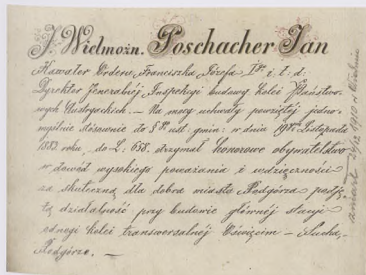 J. Wielmożn. Poschacher Jan
Kawaler Orderu Franciszka Józefa i. t. d.
Dyrektor Jeneralnej Inspekcyi budowy Kolei Państwo-
wych Austryackich. — Na mocy uchwały powziętej jedno-
myślnie stosownie do § ust. gmin: w dniu Listopada
1883 roku, do L. 658. otrzymał honorowe obywatelstwo
w dowód wysokiego poważania i wdzięczności
za skuteczną dla dobra miasta Podgórza podję-
tą działalność przy budowie głównej stacyi
c. kolei transwersalnej Oświęcim — Sucha,
Podgórze. —